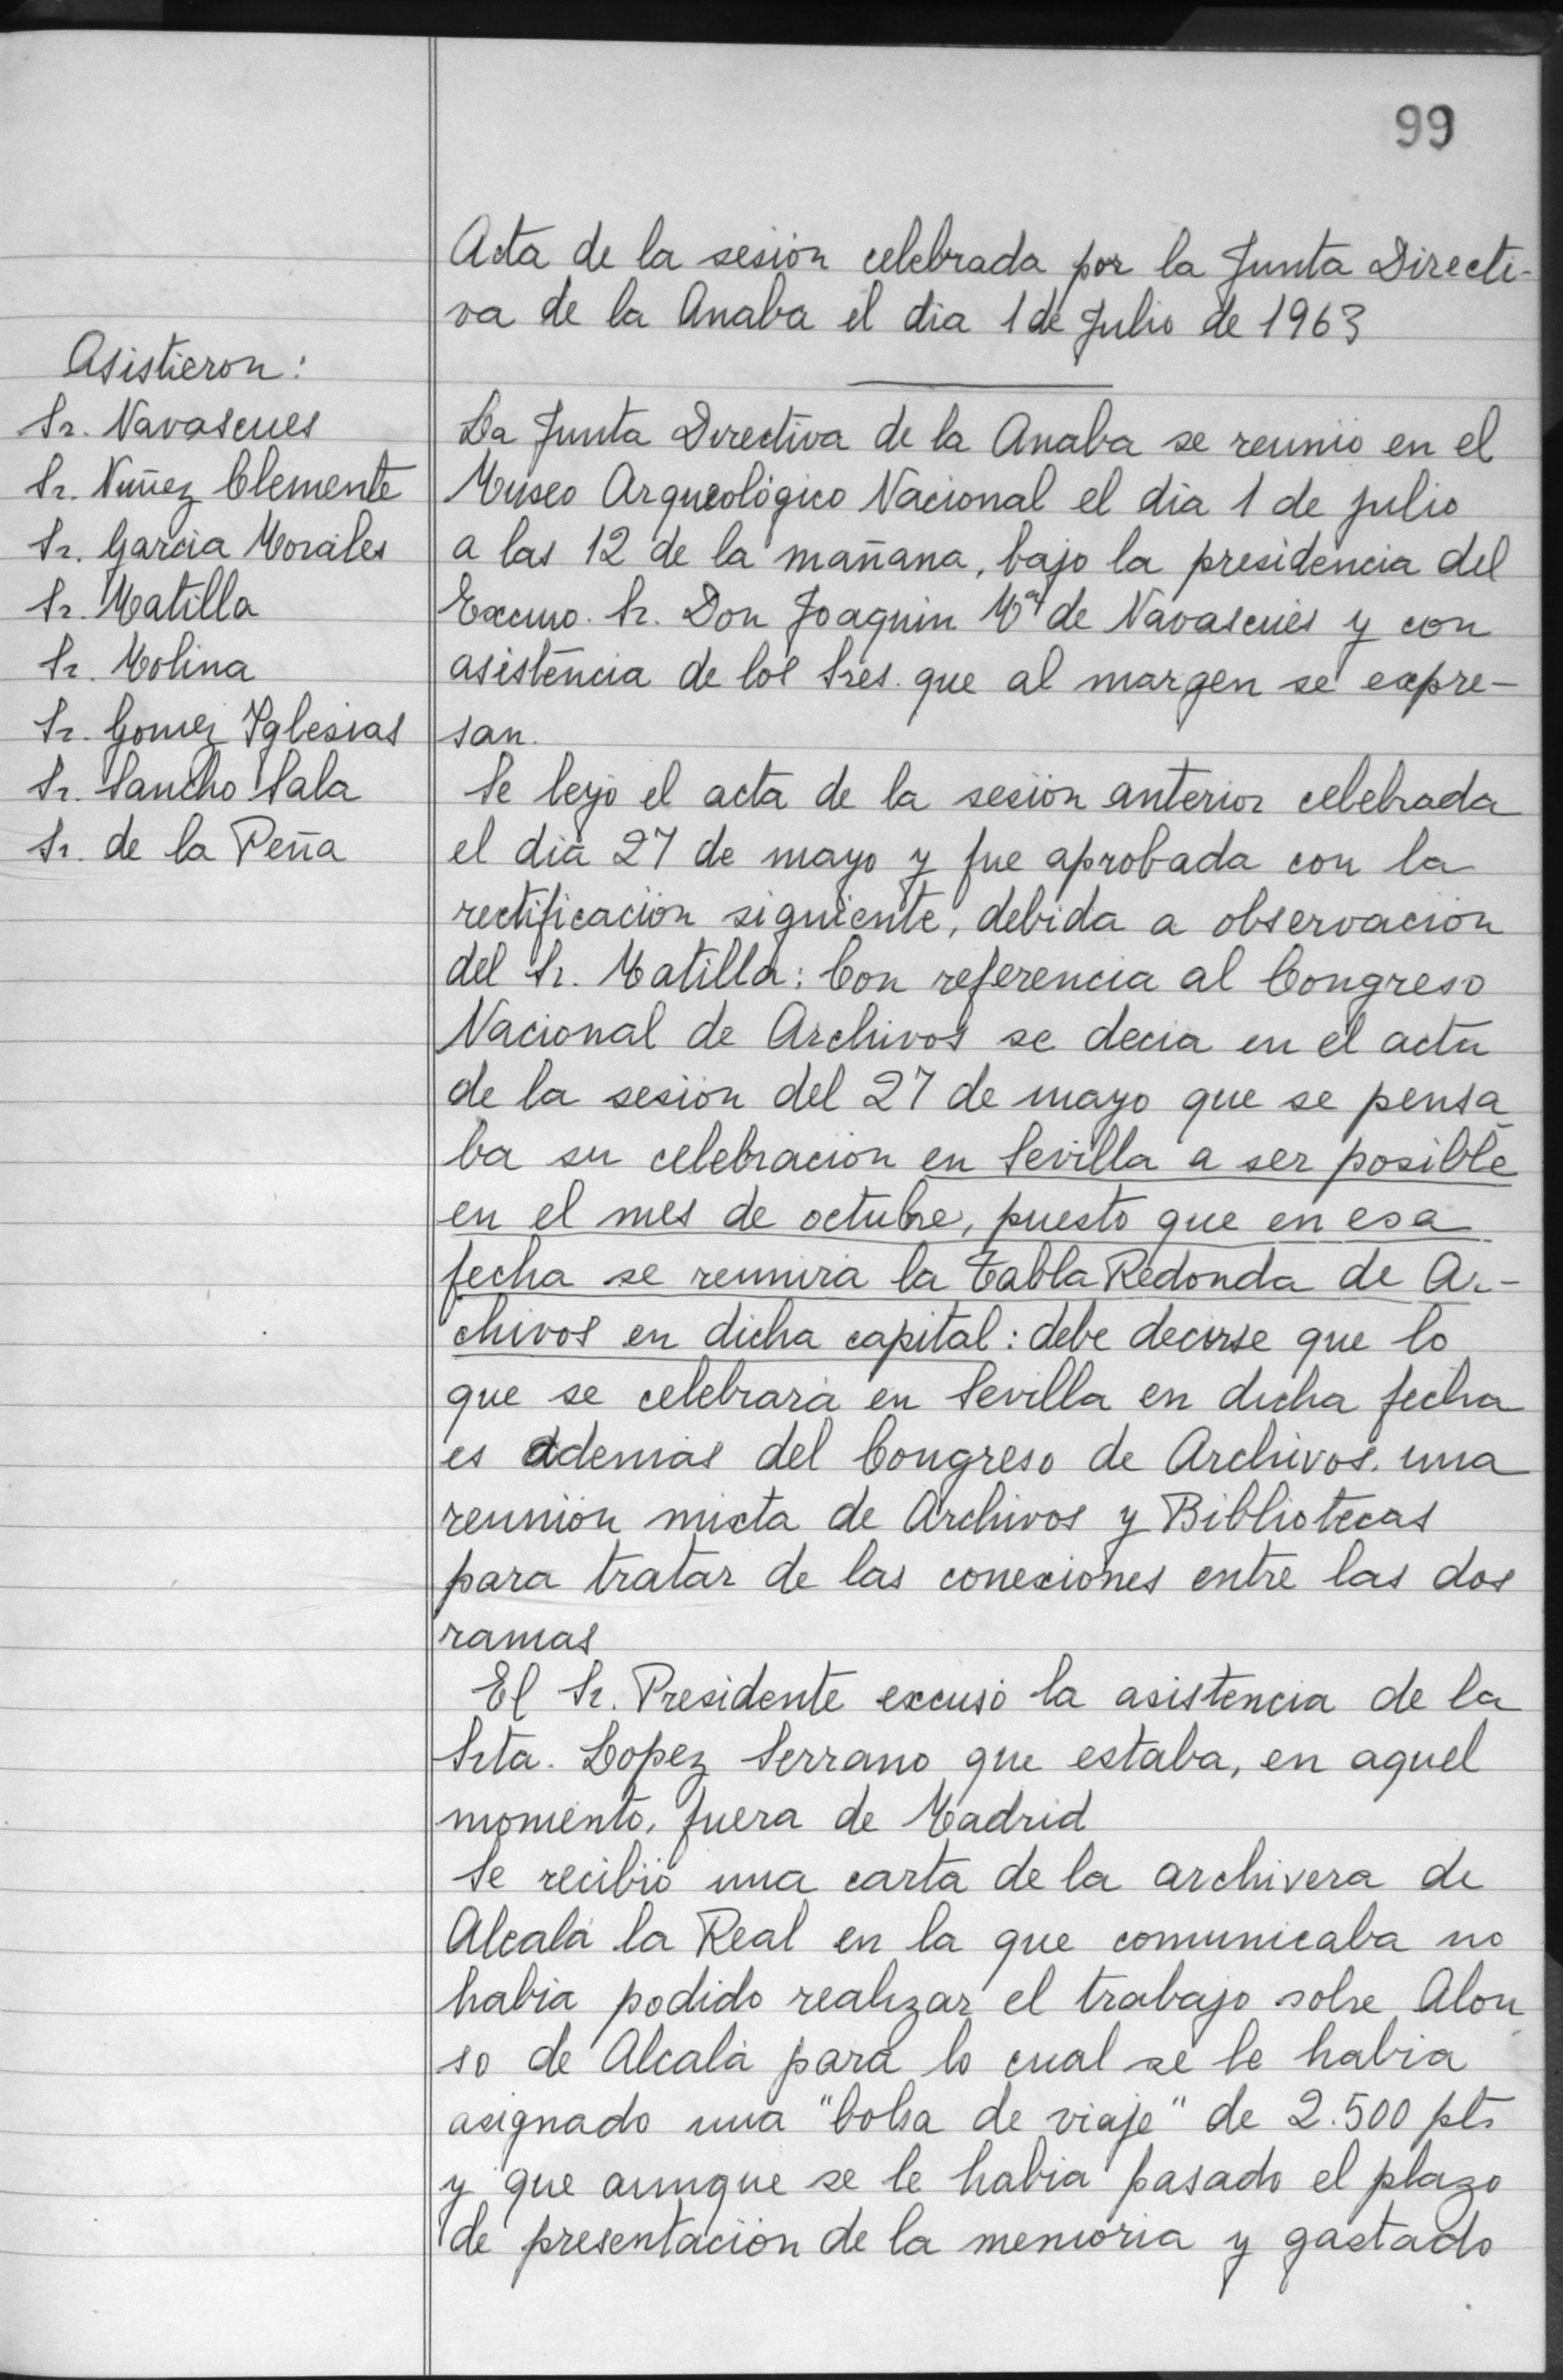 99
Acta de la sesión celebrada por la Junta Directi-
va de la Anaba el dia 1 de Julio de 1963
Asistieron:
Sr. Navascues
Sr. Nuñez Clemente
Sr. Garcia Morales
Sr. Matilla
Sr. Molina
Sr. Gomez Iglesias
Sr. Sancho Sala
Sr. de la Peña
La Junta Directiva de la Anaba se reunió en el
Museo Arqueológico Nacional el dia 1 de julio
a las 12 de la mañana, bajo la presidencia del
Excmo. Sr. Don Joaquin Mª de Navascués y con
asistencia de los Sres. que al margen se expre-
san.
Se leyó el acta de la sesión anterior celebrada
el dia 27 de mayo y fue aprobada con la
rectificación siguiente, debida a observación
del Sr. Matilla: Con referencia al Congreso
Nacional de Archivos se decia en el acta
de la sesión del 27 de mayo que se pensa-
ba su celebración en Sevilla a ser posible
en el mes de octubre, puesto que en esa
fecha se reunirá la Tabla Redonda de Ar-
chivos en dicha capital: debe decirse que lo
que se celebrará en Sevilla en dicha fecha
es además del Congreso de Archivos, una
reunión mixta de Archivos y Bibliotecas
para tratar de las conexiones entre las dos
ramas
El Sr. Presidente excusó la asistencia de la
Srta. Lopez Serrano que estaba, en aquel
momento, fuera de Madrid
Se recibió una carta de la archivera de
Alcalá la Real en la que comunicaba no
habia podido realizar el trabajo sobre Alon-
so de Alcalá para lo cual se le habia
asignado una "bolsa de viaje" de 2.500 pts
y que aunque se le habia pasado el plazo
de presentación de la memoria y gastado